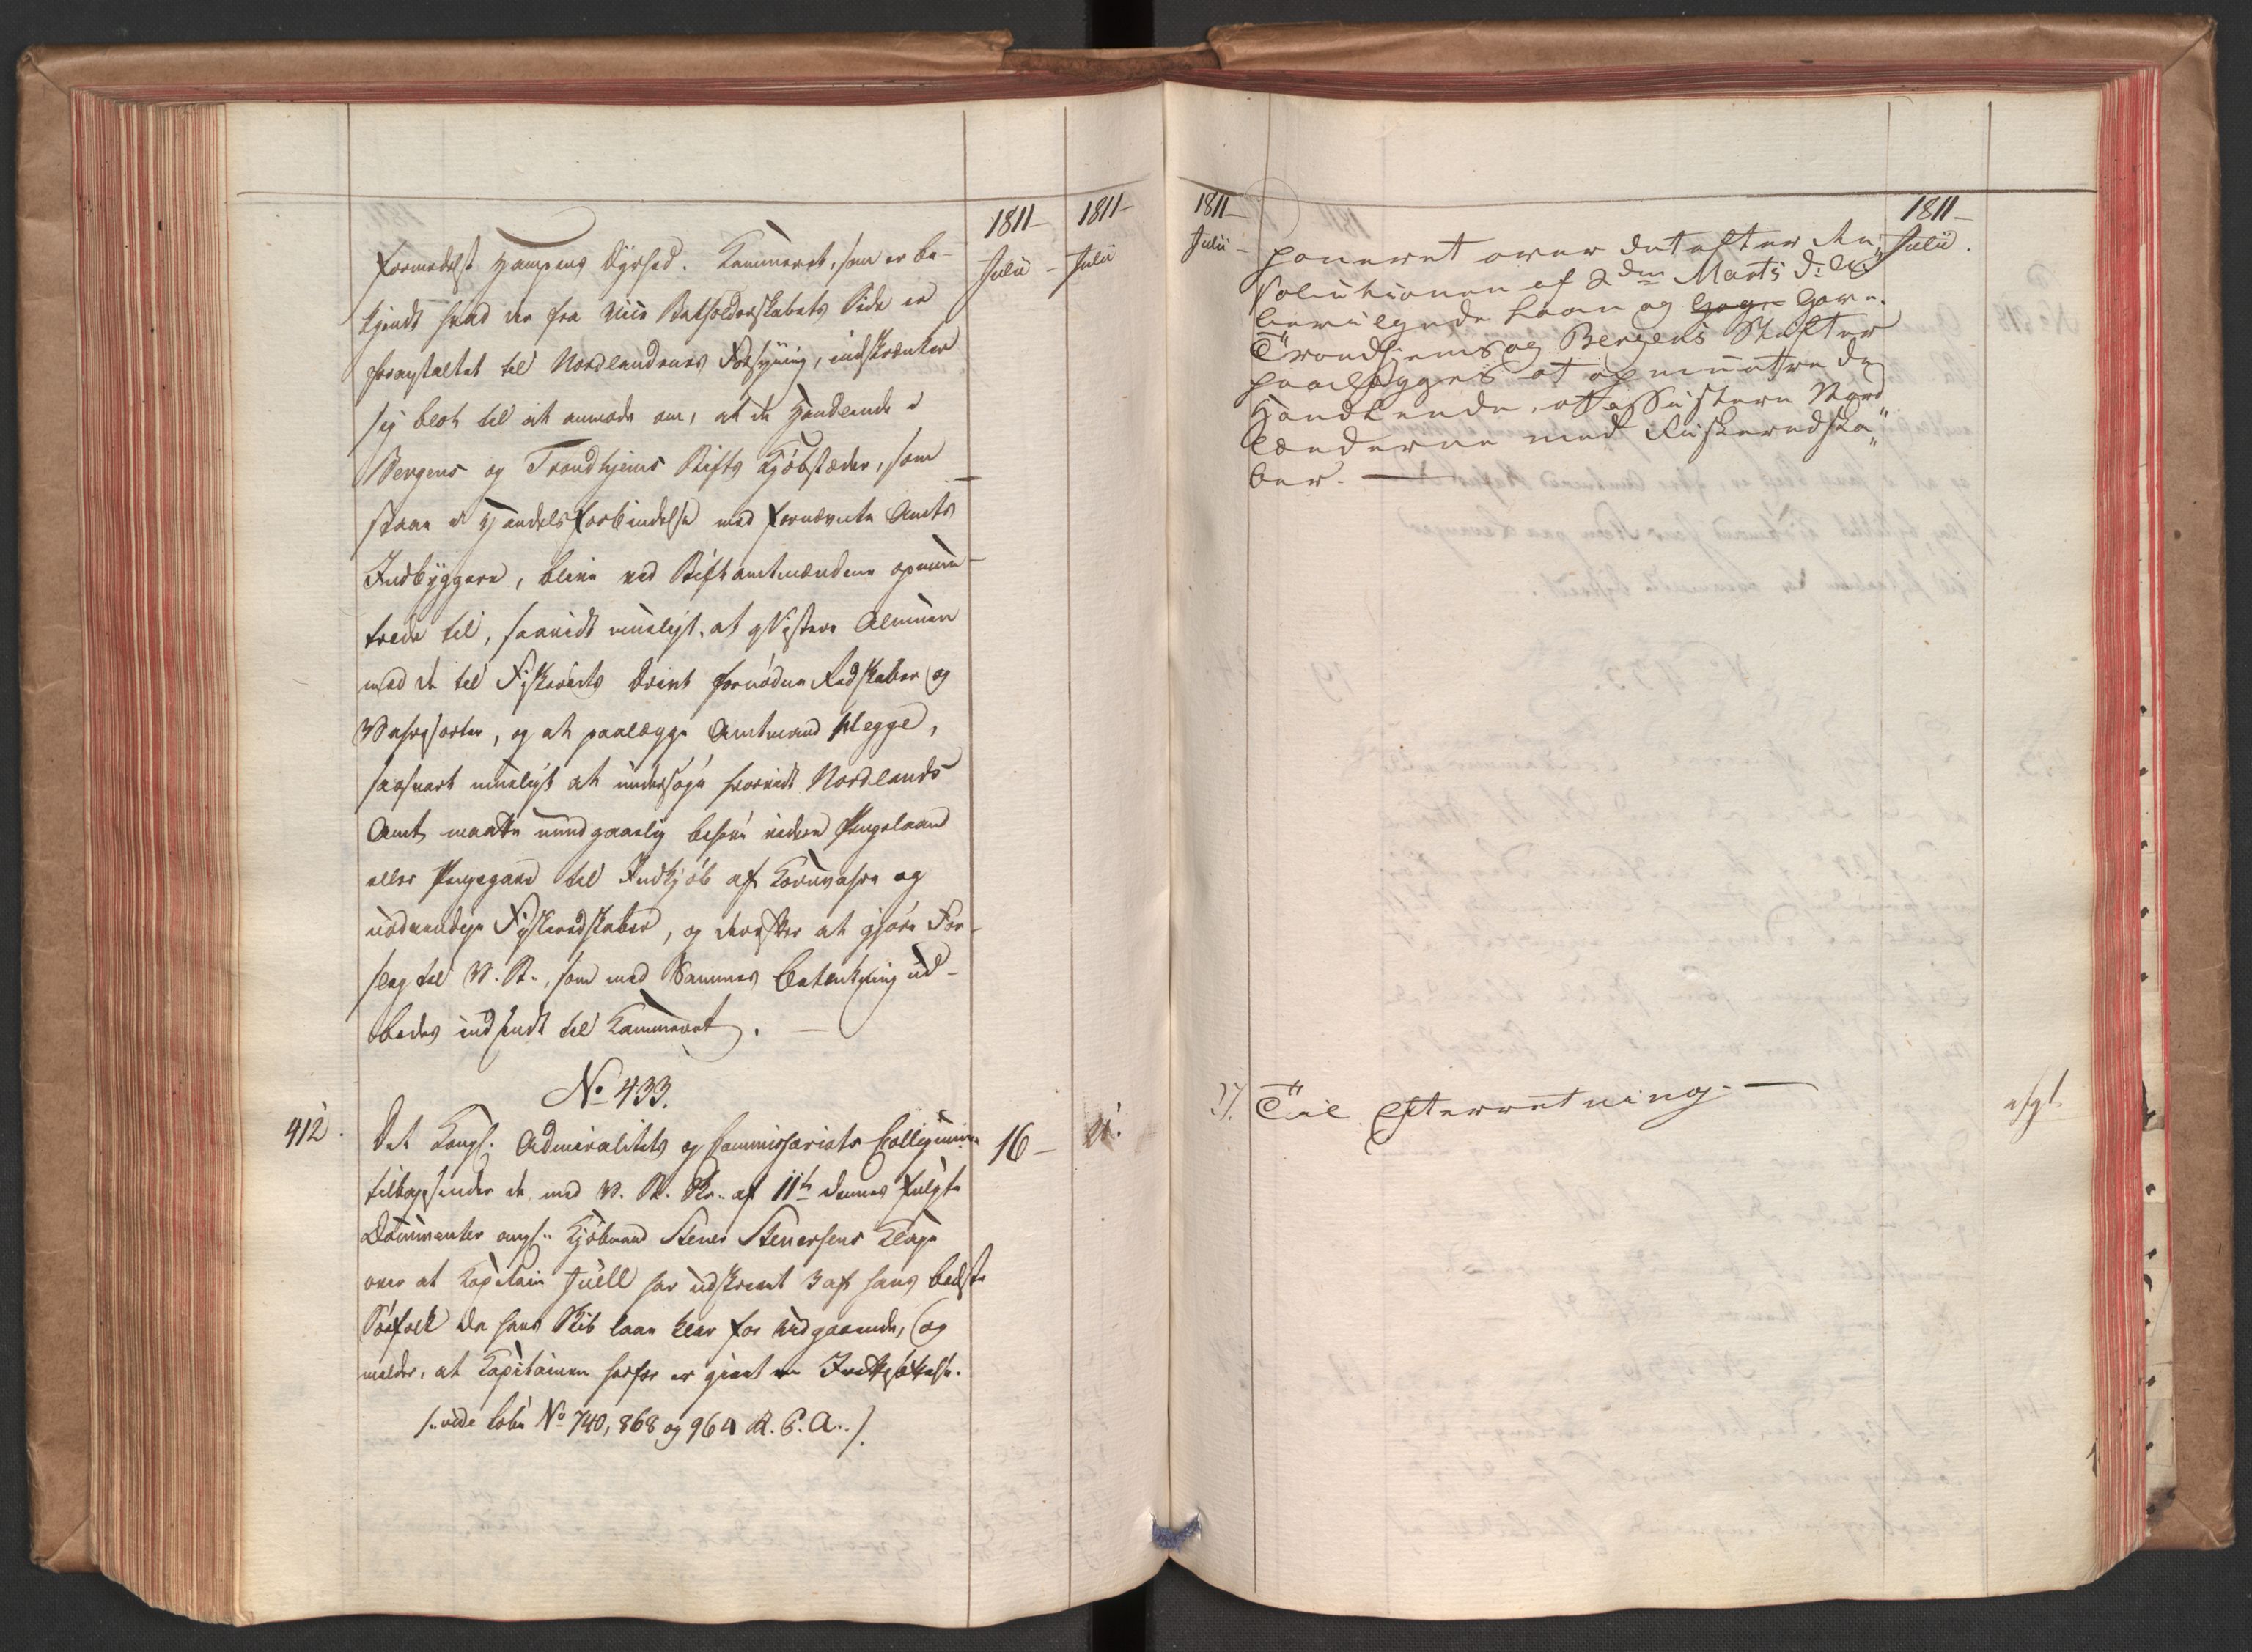 1811–
1811–
Julii –
Julii
formedelst Hampens Dyrhed. Kammeret, som er be-
kjendt hvad der fra Viice Statholderskabets Side er
foranstaltet til Nordlandenes Forsyning, indskrænker
sig blot til at anmode om, at de Handlende i
Bergens og Trondhjems Stifts Kjöbstæder, som
staae i Handelsforbindelse med fornævnte Amts
Indbyggere, blive ved Stiftamtmændene opmun-
trede til, saavidt mueligt, at assistere Almuen
med de til Fiskeriets Drivt fornödne Redskaber og
Vahresorter, og at paalægge Amtmand Hegge,
saasnart mueligt at undersöge hvorvidt Nordlands
Amt maatte uundgaaelig behöve videre Pengelaan
eller Pengegave til Indkjöb af Kornvahre og
nödvendige Fiskeredskaber, og derefter at gjöre For-
slag til V. St., som med Sammes Betænkning ud-
bedes indsendt til Kammeret. —
No 433.
412.
Det Kongl. Admiralitets og Commissariats Collegium
16 –
tilbagesender de med V. St. Skr. af 11te dennes fulgte
Documenter angl. Kjöbmand Stener Stenersens Klage
over at Kapitain Juell har udskrevet 3 af hans bedste
Söefolk da hans Skib laae klar for Udgaaende, og
melder, at Kapitainen herfor er givet en Irettesættelse.
/: vide Löbe No 740, 868 og 964 R. C. A. :/
1811–
Julii –
1811–
Julii.
poneret over det efter Re-
solutionen af 2den Marts d: A:
bevilgede Laan og Gave.
Trondhjems og Bergens Stifter
paalægges at opmuntre de
Handlende, at assistere Nord
lænderne med Fiskeredska„
ber. —
27.
Til Efterretning. —
afgt.